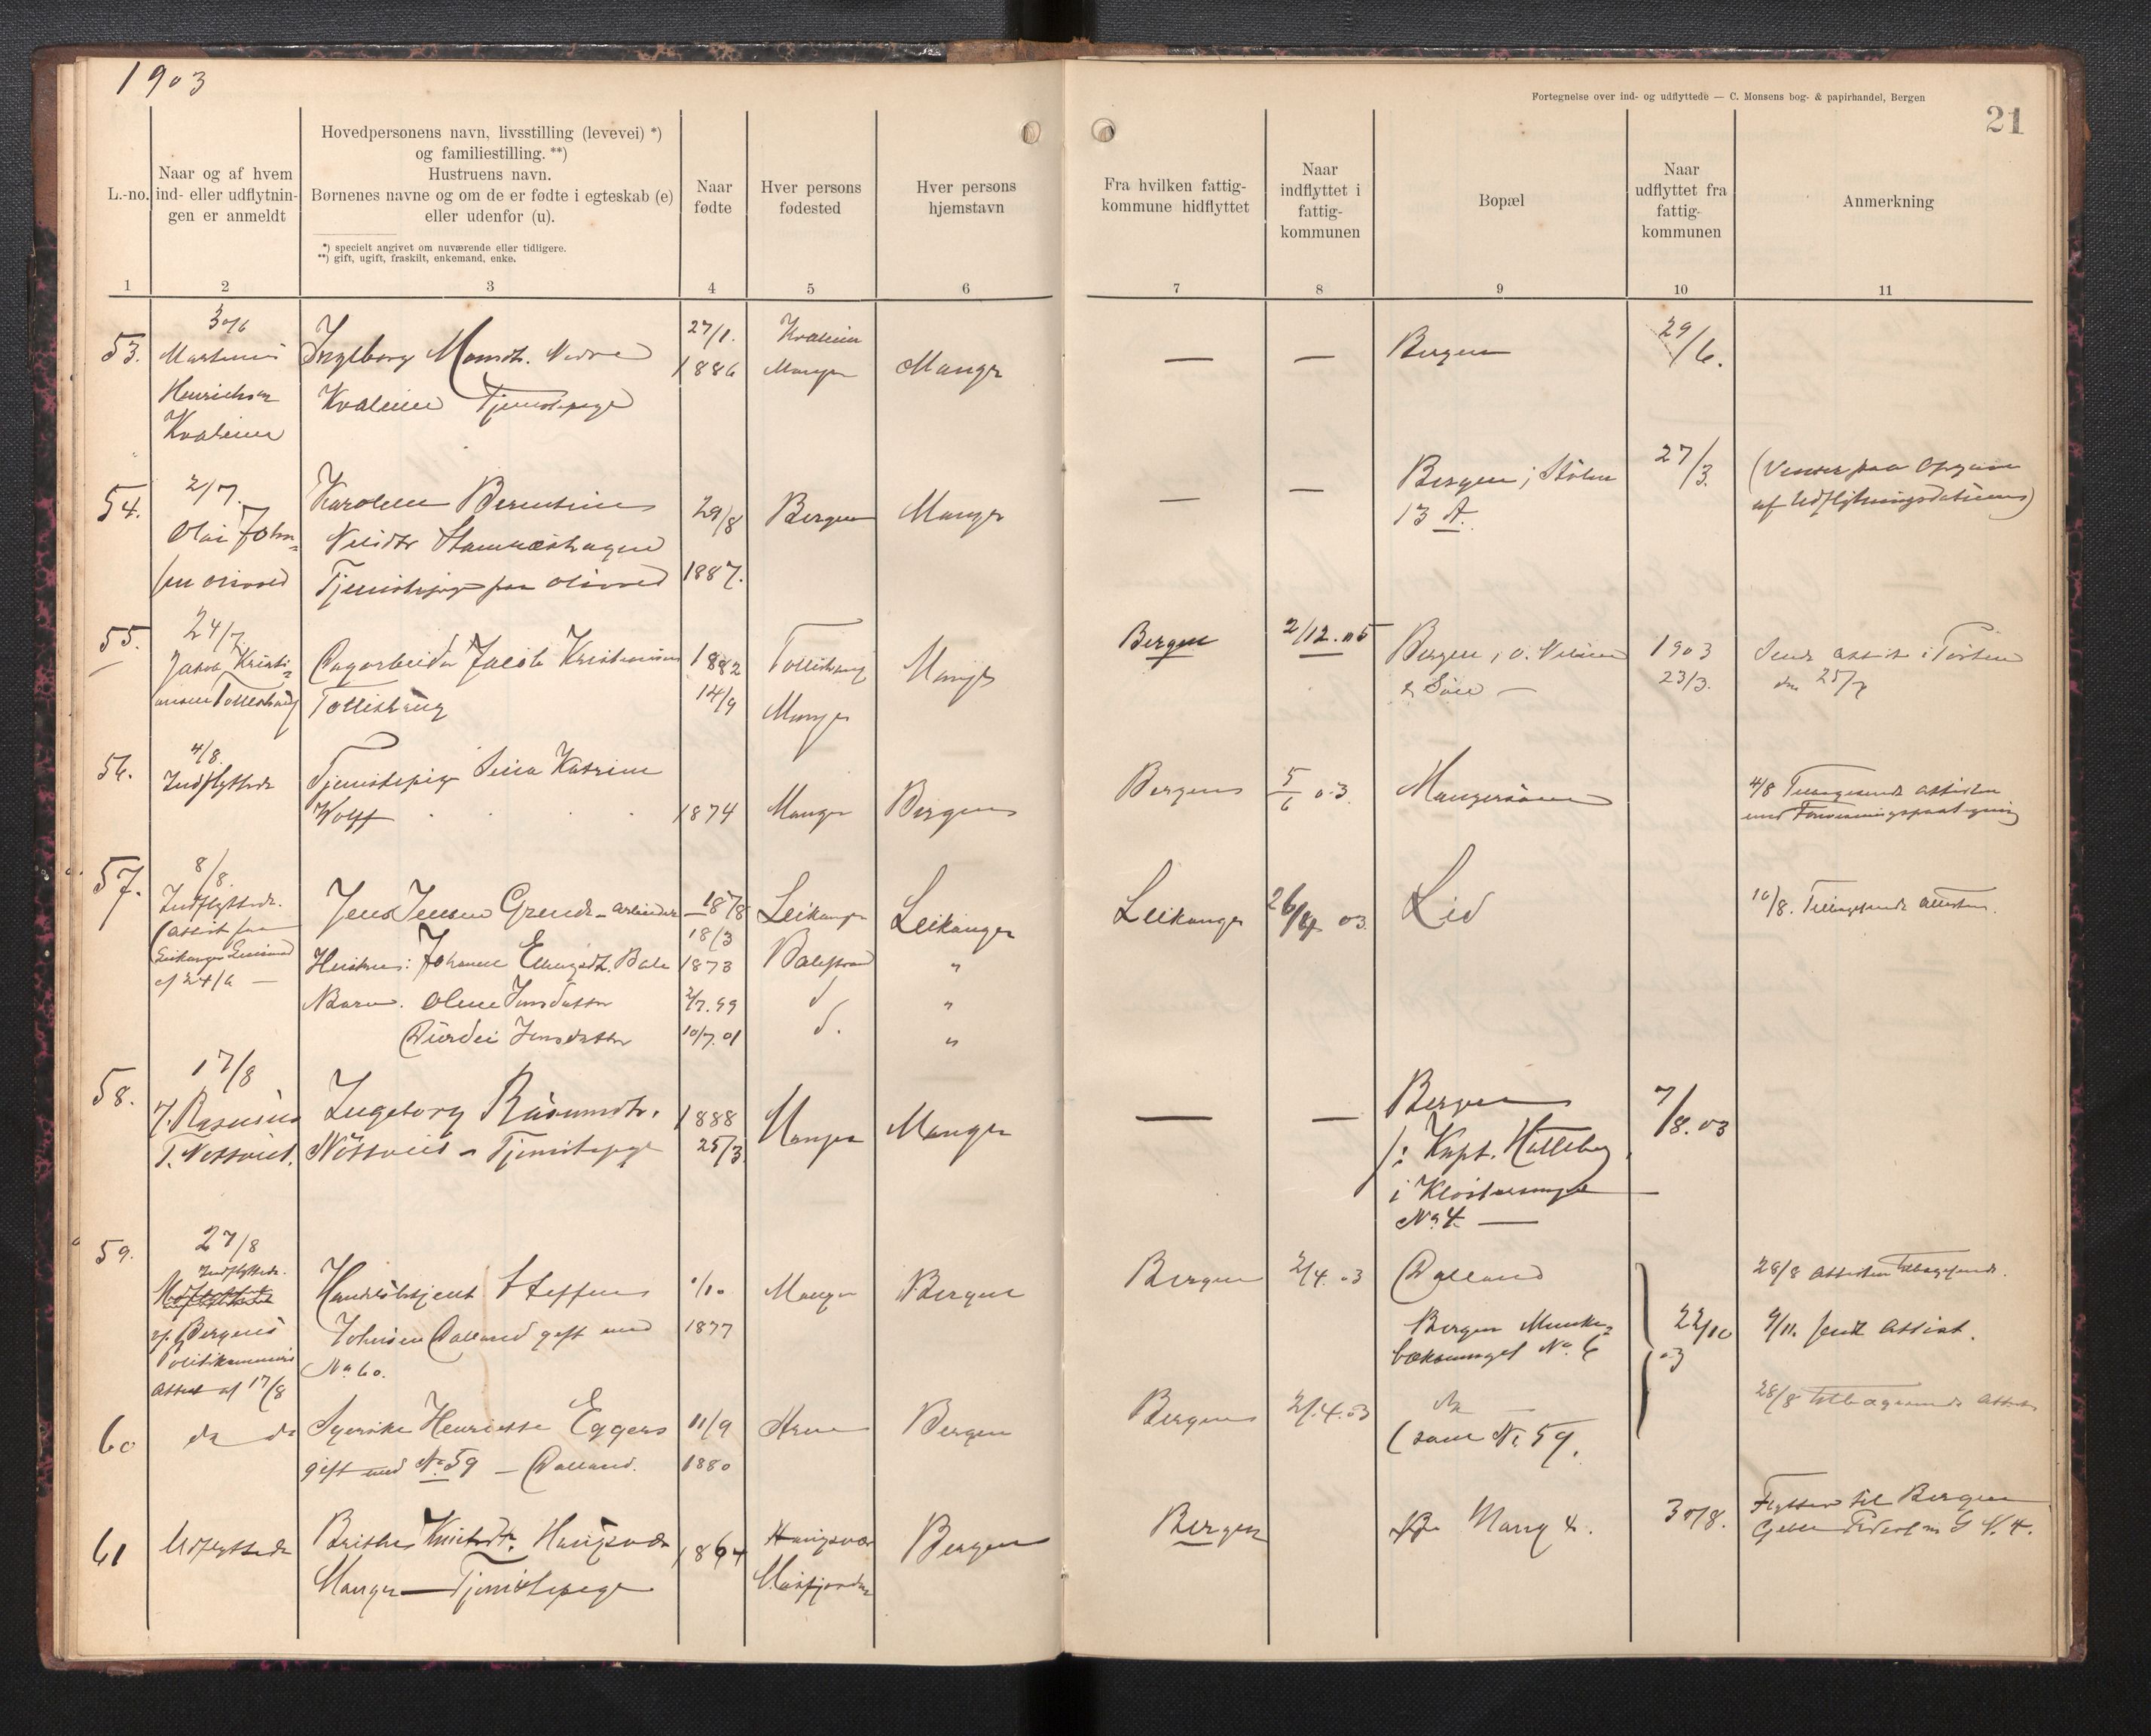 1903
Fortegnelse over ind- og udflyttede — C. Monsens bog- & papirhandel, Bergen
21
L.-no.
Naar og af hvem
ind- eller udflytnin-
gen er anmeldt
Hovedpersonens navn, livsstilling (levevei) *)
og familiestilling. **)
Hustruens navn.
Børnenes navne og om de er fødte i egteskab (e)
eller udenfor (u).
*) specielt angivet om nuværende eller tidligere.
**) gift, ugift, fraskilt, enkemand, enke.
Naar
fødte
Hver persons
fødested
Hver persons
hjemstavn
Fra hvilken fattig-
kommune hidflyttet
Naar
indflyttet i
fattig-
kommunen
Bopæl
Naar
udflyttet fra
fattig-
kommunen
Anmerkning
1 2 3 4 5 6 7 8 9 10 11
53.
30/6
Martinus
Henriksen
Kvaleim
Ingeborg Monsdt. Nedre
Kvaleim Tjenestepige
27/1.
1886
Kvaleim
Manger
Manger
—
—
Bergen
29/6.
54.
2/7.
Olai John-
sen
Karoline Berntine
Nilsdtr
Tjenestepige paa
29/8
1887.
Bergen
Manger
—
—
Bergen, Stølen
13 A.
27/3.
af Udflytningsdatum)
55.
24/7.
Jakob Kristi-
Jakob Kristiansen
1882
14/9
Manger
Manger
Bergen
2/12. 05
Bergen,
& Søn —
1903
23/3.
Sendt attest i Posten
den 25/7
56.
4/8.
Indflyttede
Tjenestepige Sina Katrine
Wolff
1874
Manger
Bergen
Bergen
5/6 03.
Mangersnes
4/8 Tilbagesendt attesten
med
57.
8/8.
Indflyttede.
(attest fra
Leikanger Lensmand
af 24/6 —
Jens Jensen Grende - arbeider
Hustru: Johanne Ellingsdt. Bale
Barn. Oline Jensdatter
Jensdatter
1878
18/3
1873
2/7. 99
10/7. 01
Leikanger
Balestrand
d.
d.
Leikanger
"
"
"
Leikanger
26/4 03.
Lid
10/8. Tilbagesendt attesten.
58.
17/8
Rasmus
T. Nøssveit.
Ingeborg Rasmusdtr.
Nøssveit - Tjenestepige
1888
25/3.
Manger
Manger
—
—
Bergen
/: Kapt. Halleberg
i Klostersmuget —
No. 4. —
7/8. 03
59.
27/8
Indflyttede.
af Bergens
Politikammers
Attest af 17/8
Handelsbetjent Steffen
Johnsen Dalland gift med
No. 60.
1/10
1877
Manger
Bergen
Bergen
2/4. 03
Dalland
Bergen Munke-
bæksmuget No. 6
22/10
03
28/8 Attesten tilbagesendt.
9/11. sendt Attest.
60
do do
Syerske Henriette Eggers
gift med No. 59 — Dalland.
11/9
1880
Bergen
Bergen
2/.4.03
do —
(som No. 59.
28/8 tilbagesendt Attest
61
Udflyttede
Brithe Knutsdtr. Haugsvær
Manger — Tjenestepige
1864
Haugsvær
Masfjorden
Bergen
Bergen
Mang 4.
30/8.
Flyttede til Bergen